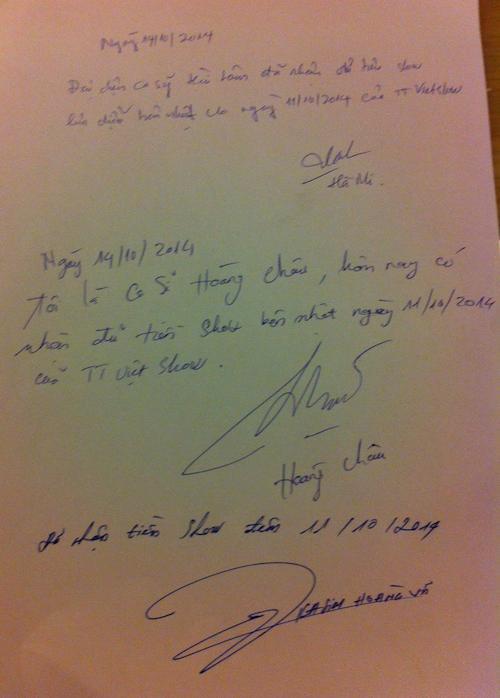 Ngày 14/10/2014
Đại diện Ca sỹ đã nhận đủ tiền show
ngày 11/10/2014 của TT Việt Show
Hà Mi.
Ngày 14/10/2014
Tôi là Ca Sĩ Hoàng Châu, hôm nay có
nhận đủ tiền Show ngày 11/10/2014
của TT Việt Show.
Hoàng Châu
đã nhận tiền Show đêm 11/10/2014